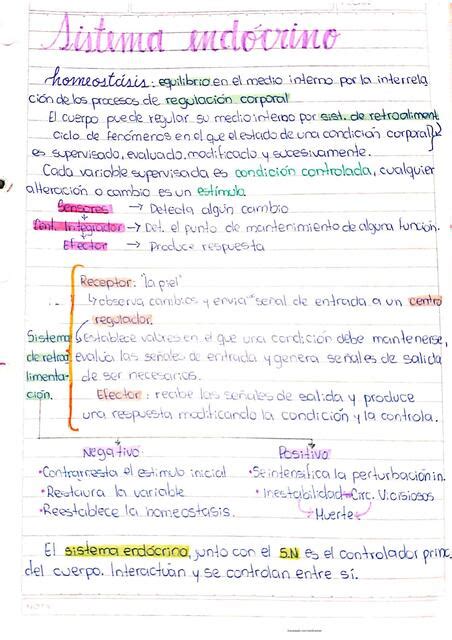 Sistema endócrino
homeostásis: equilibrio en el medio interno por la interrela
ción de los procesos de regulación corporal
El cuerpo puede regular su medio interno por sist. de retroaliment
ciclo de fenómenos en el que el estado de una condición corporal
es supervisado, evaluado, modificado y sucesivamente.
Cada variable supervisada es condición controlada, cualquier
alteración o cambio es un estímulo
Sensores → Detecta algún cambio
Cent. Integrador → Det. el punto de mantenimiento de alguna función.
Efector → Produce respuesta
Receptor: "la piel"
↳ observa cambios y envia señal de entrada a un centro
regulador.
Establece valores en el que una condición debe mantenerse,
evalúa las señales de entrada y genera señales de salida
de ser necesarios.
Efector: recibe las señales de salida y produce
una respuesta modificando la condición y la controla.
Sistema
de retroa
limenta-
ción.
Negativo
• Contrarresta el estimulo inicial
• Restaura la variable
• Reestablece la homeostasis.
Positivo
• Se intensifica la perturbación in.
• Inestabilidad → Circ. Viciosos
→ Muerte
El sistema endócrino, junto con el S.N es el controlador princ.
del cuerpo. Interactúan y se controlan entre sí.
NOTA